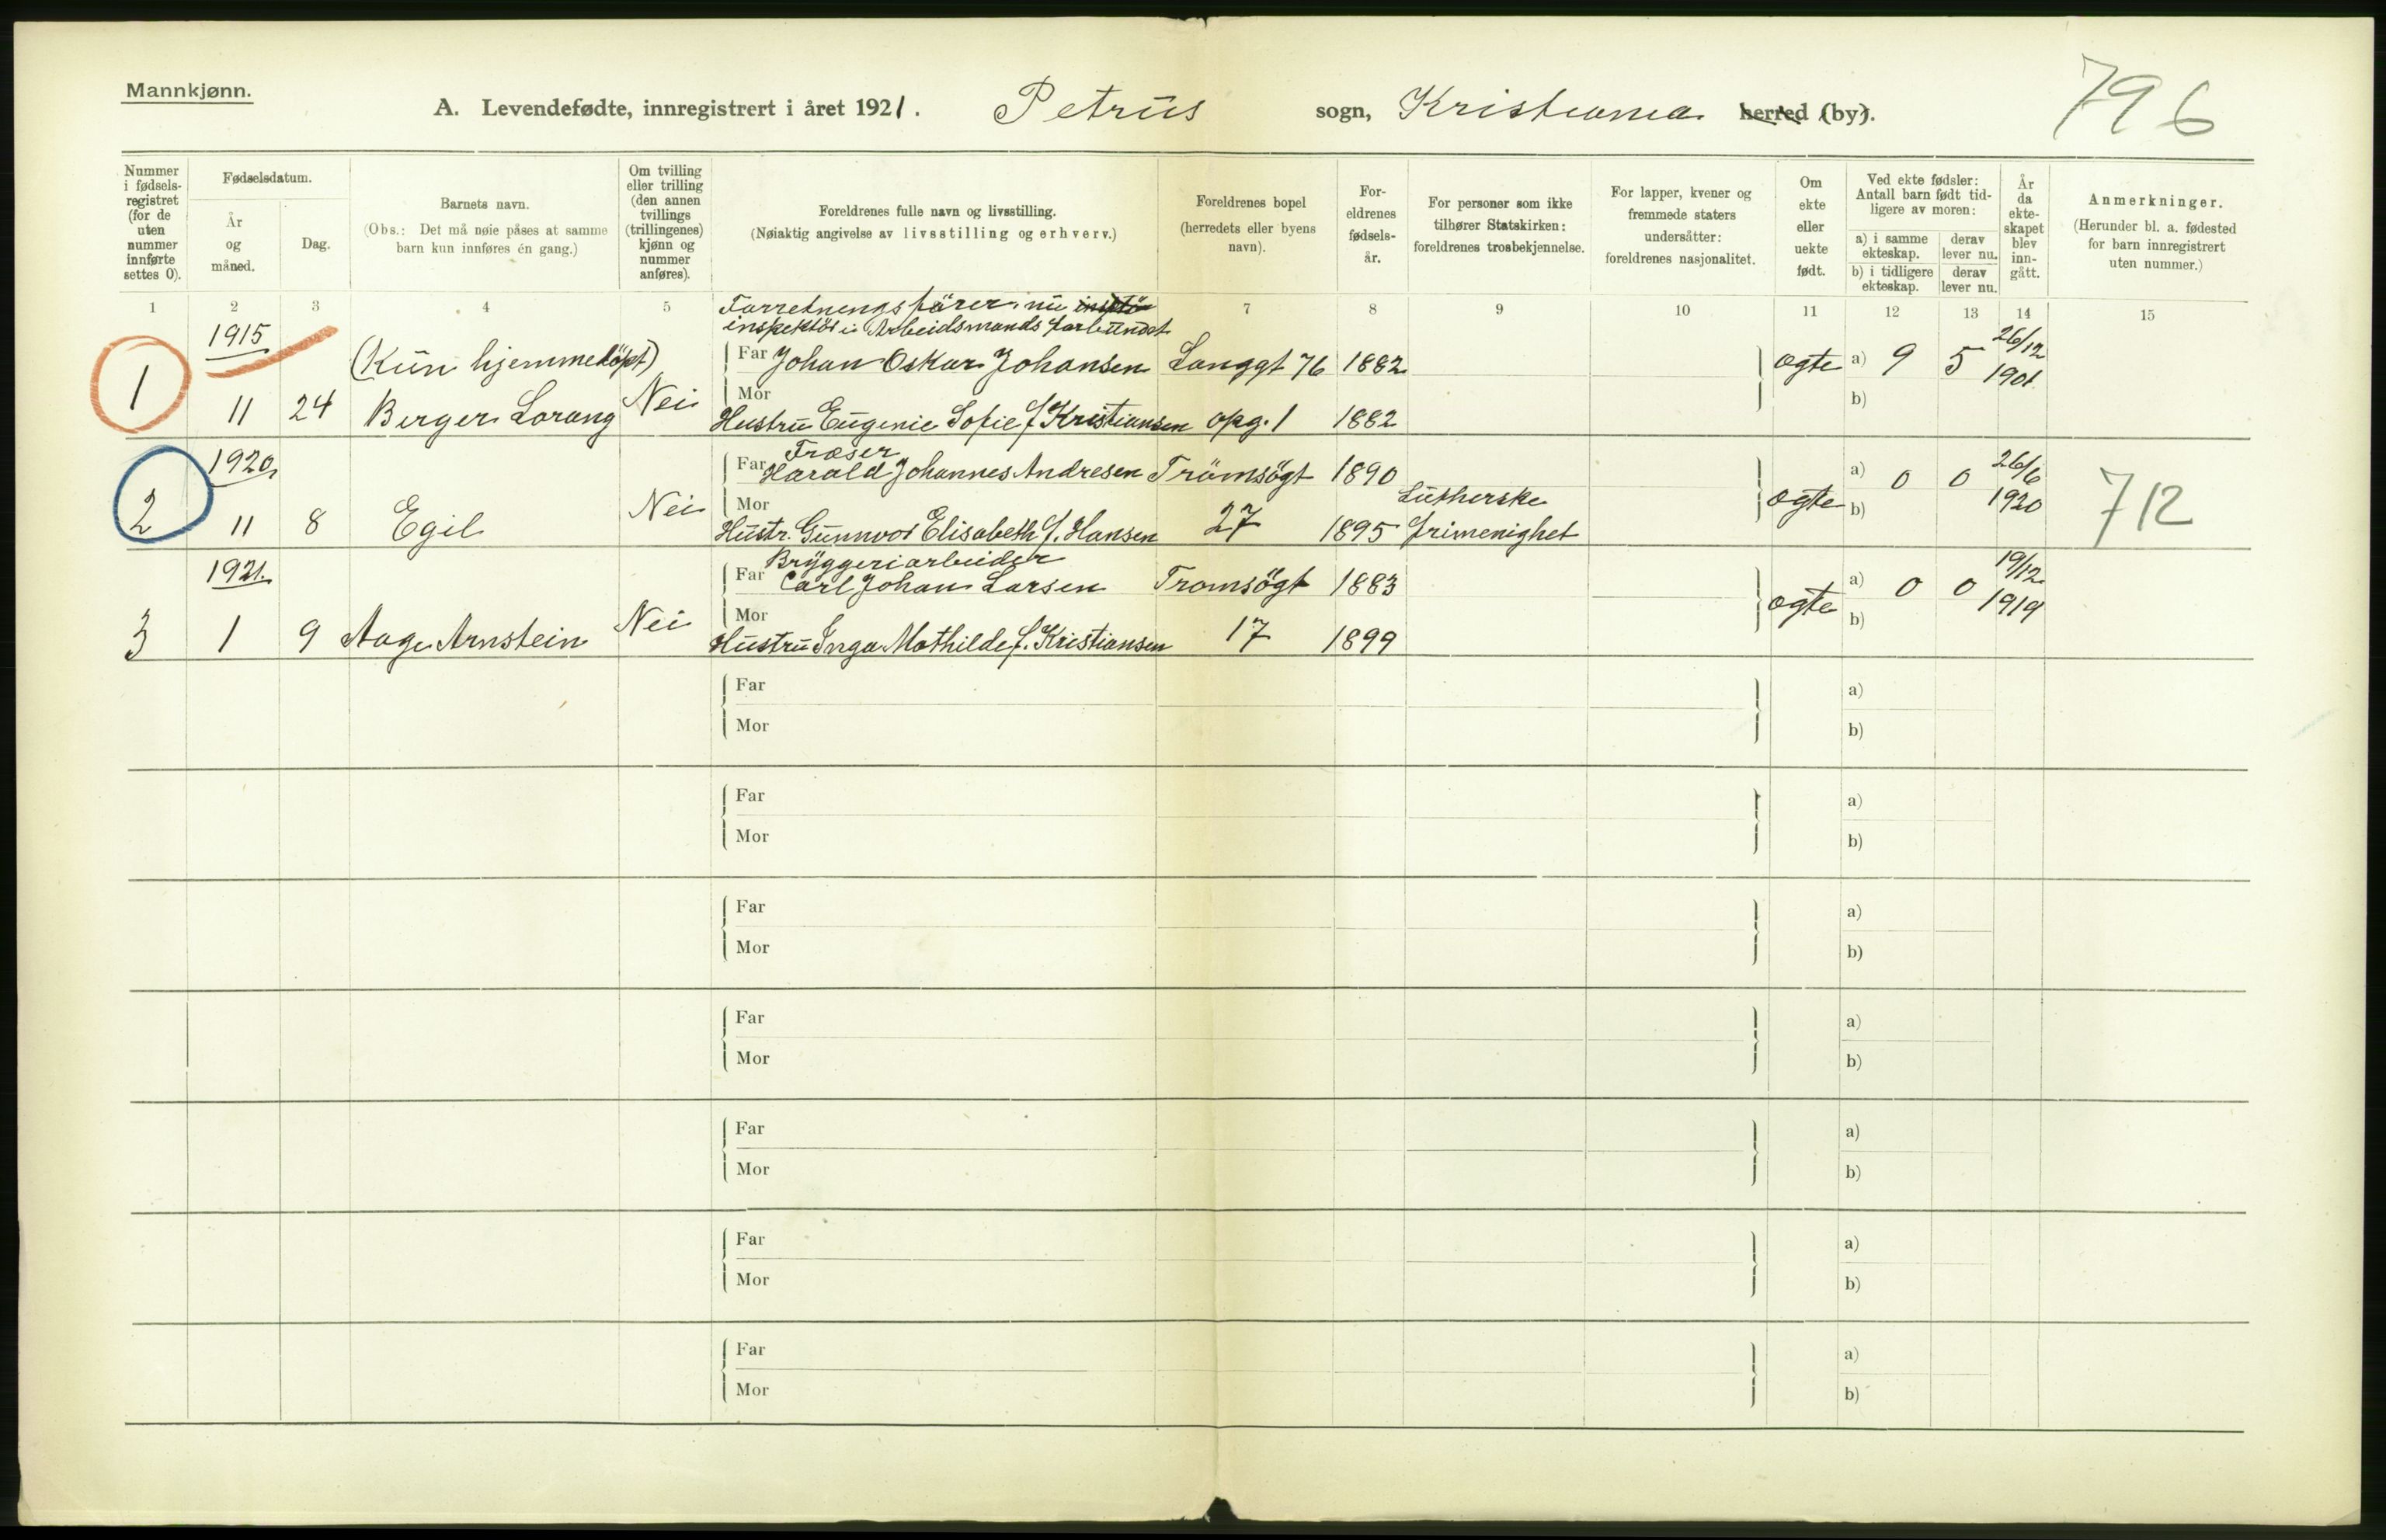 Mannkjønn.
A. Levendefødte, innregistrert i året 1921. Petrus sogn, Kristiania herred (by).
796
Nummer i fødsels-registret (for de uten nummer innførte settes 0).
Fødselsdatum.
År og måned.
Dag.
Barnets navn.
(Obs.: Det må nøie påses at samme barn kun innføres én gang.)
Om tvilling eller trilling (den annen tvillings (trillingenes) kjønn og nummer anføres).
Foreldrenes fulle navn og livsstilling.
(Nøiaktig angivelse av livsstilling og erhverv.)
Foreldrenes bopel (herredets eller byens navn).
For-eldrenes fødsels-år.
For personer som ikke tilhører Statskirken: foreldrenes trosbekjennelse.
For lapper, kvener og fremmede staters undersåtter: foreldrenes nasjonalitet.
Om ekte eller uekte født.
Ved ekte fødsler: Antall barn født tid-ligere av moren:
a) i samme ekteskap. derav lever nu.
b) i tidligere ekteskap. derav lever nu.
År da ekte-skapet blev inn-gått.
Anmerkninger.
(Herunder bl. a. fødested for barn innregistrert uten nummer.)
1 2 3 4 5 7 8 9 10 11 12 13 14 15
Forretningsfører, nu
inspektör i Arbeidsmandsforbundet
1915 (Kun hjemmedöpt) Far Johan Oskar Johansen Langgt 76 1882 ægte a) 9 5 26/12 1901
1 11 24 Berger Lorang Nei Mor Hustru Eugenie Sofie f. Kristiansen opg. 1 1882 b)
Fræser
1920 Far Harald Johannes Andresen Trömsögt 1890 a) 0 0 26/6
2 11 8 Egil Nei Mor Hustr. Gunnvor Elisabeth f. Hansen 27 1895 Lutherske frimenighet ægte b) 1920 712
Bryggeriarbeider
1921. Far Carl Johan Larsen Tromsögt 1883 a) 0 0 19/12
3 1 9 Aage Arnstein Nei Mor Hustru Inga Mathilde f. Kristiansen 17 1899 ægte b) 1919
Far a)
Mor b)
Far a)
Mor b)
Far a)
Mor b)
Far a)
Mor b)
Far a)
Mor b)
Far a)
Mor b)
Far a)
Mor b)